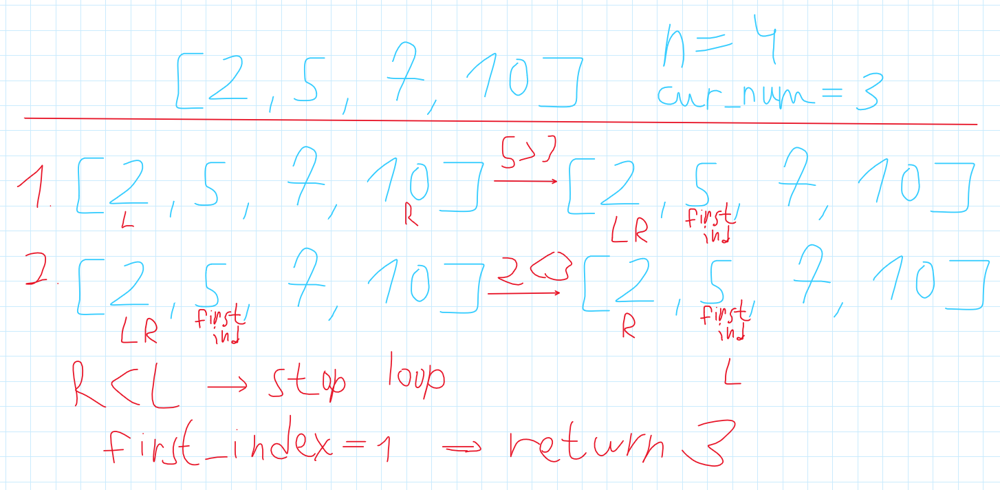 [2, 5, 7, 10] n = 4
cur_num = 3
1. [2, 5, 7, 10] 5>3 [2, 5, 7, 10]
L R LR first ind
2. [2, 5, 7, 10] 2<3 [2, 5, 7, 10]
LR first ind R first ind
L
R<L → stop loop
first_index=1 ⇒ return 3